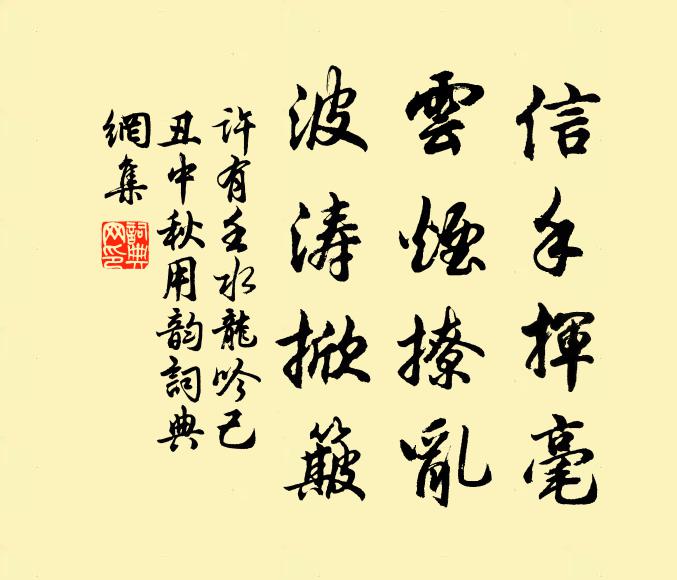 信手揮毫
雲煙撩亂
波濤掀簸
許有壬水龍吟己
丑中秋用韵詞典
網集
詞典网印